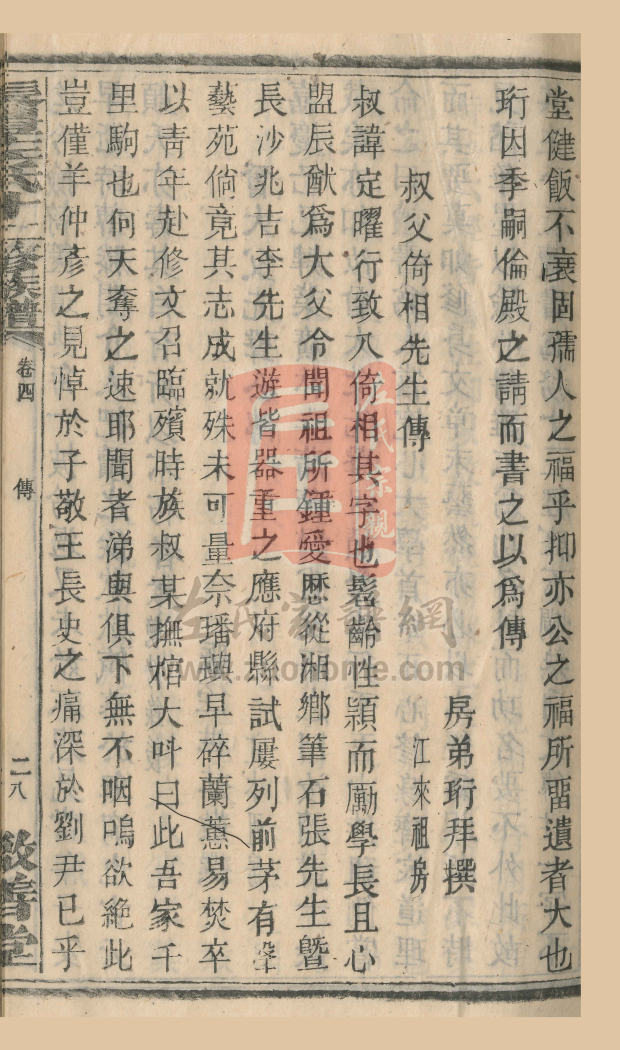 堂健飯不衰固孺人之福乎抑亦公之福所畱遺者大也
珩因季嗣倫殿之請而書之以爲傳
房弟珩拜撰
叔父倚相先生傳
江來祖房
叔諱定曜行致八倚相其字也髫齡性穎而勵學長且心
盟辰猷爲大父令聞祖所鍾愛歷從湘鄉筆石張先生曁
長沙兆吉李先生遊皆器重之應府縣試屢列前茅有聲
藝苑倘竟其志成就殊未可量奈璠璵早碎蘭蕙易焚卒
以靑年赴修文召臨殯時族叔某撫棺大呌曰此吾家千
里駒也何天奪之速耶聞者涕與俱下無不咽嗚欲絕此
豈僅羊仲彥之見悼於子敬王長史之痛深於劉尹已乎
十二修族譜
卷四
傳
二八
敬善堂
www.zuohome.com